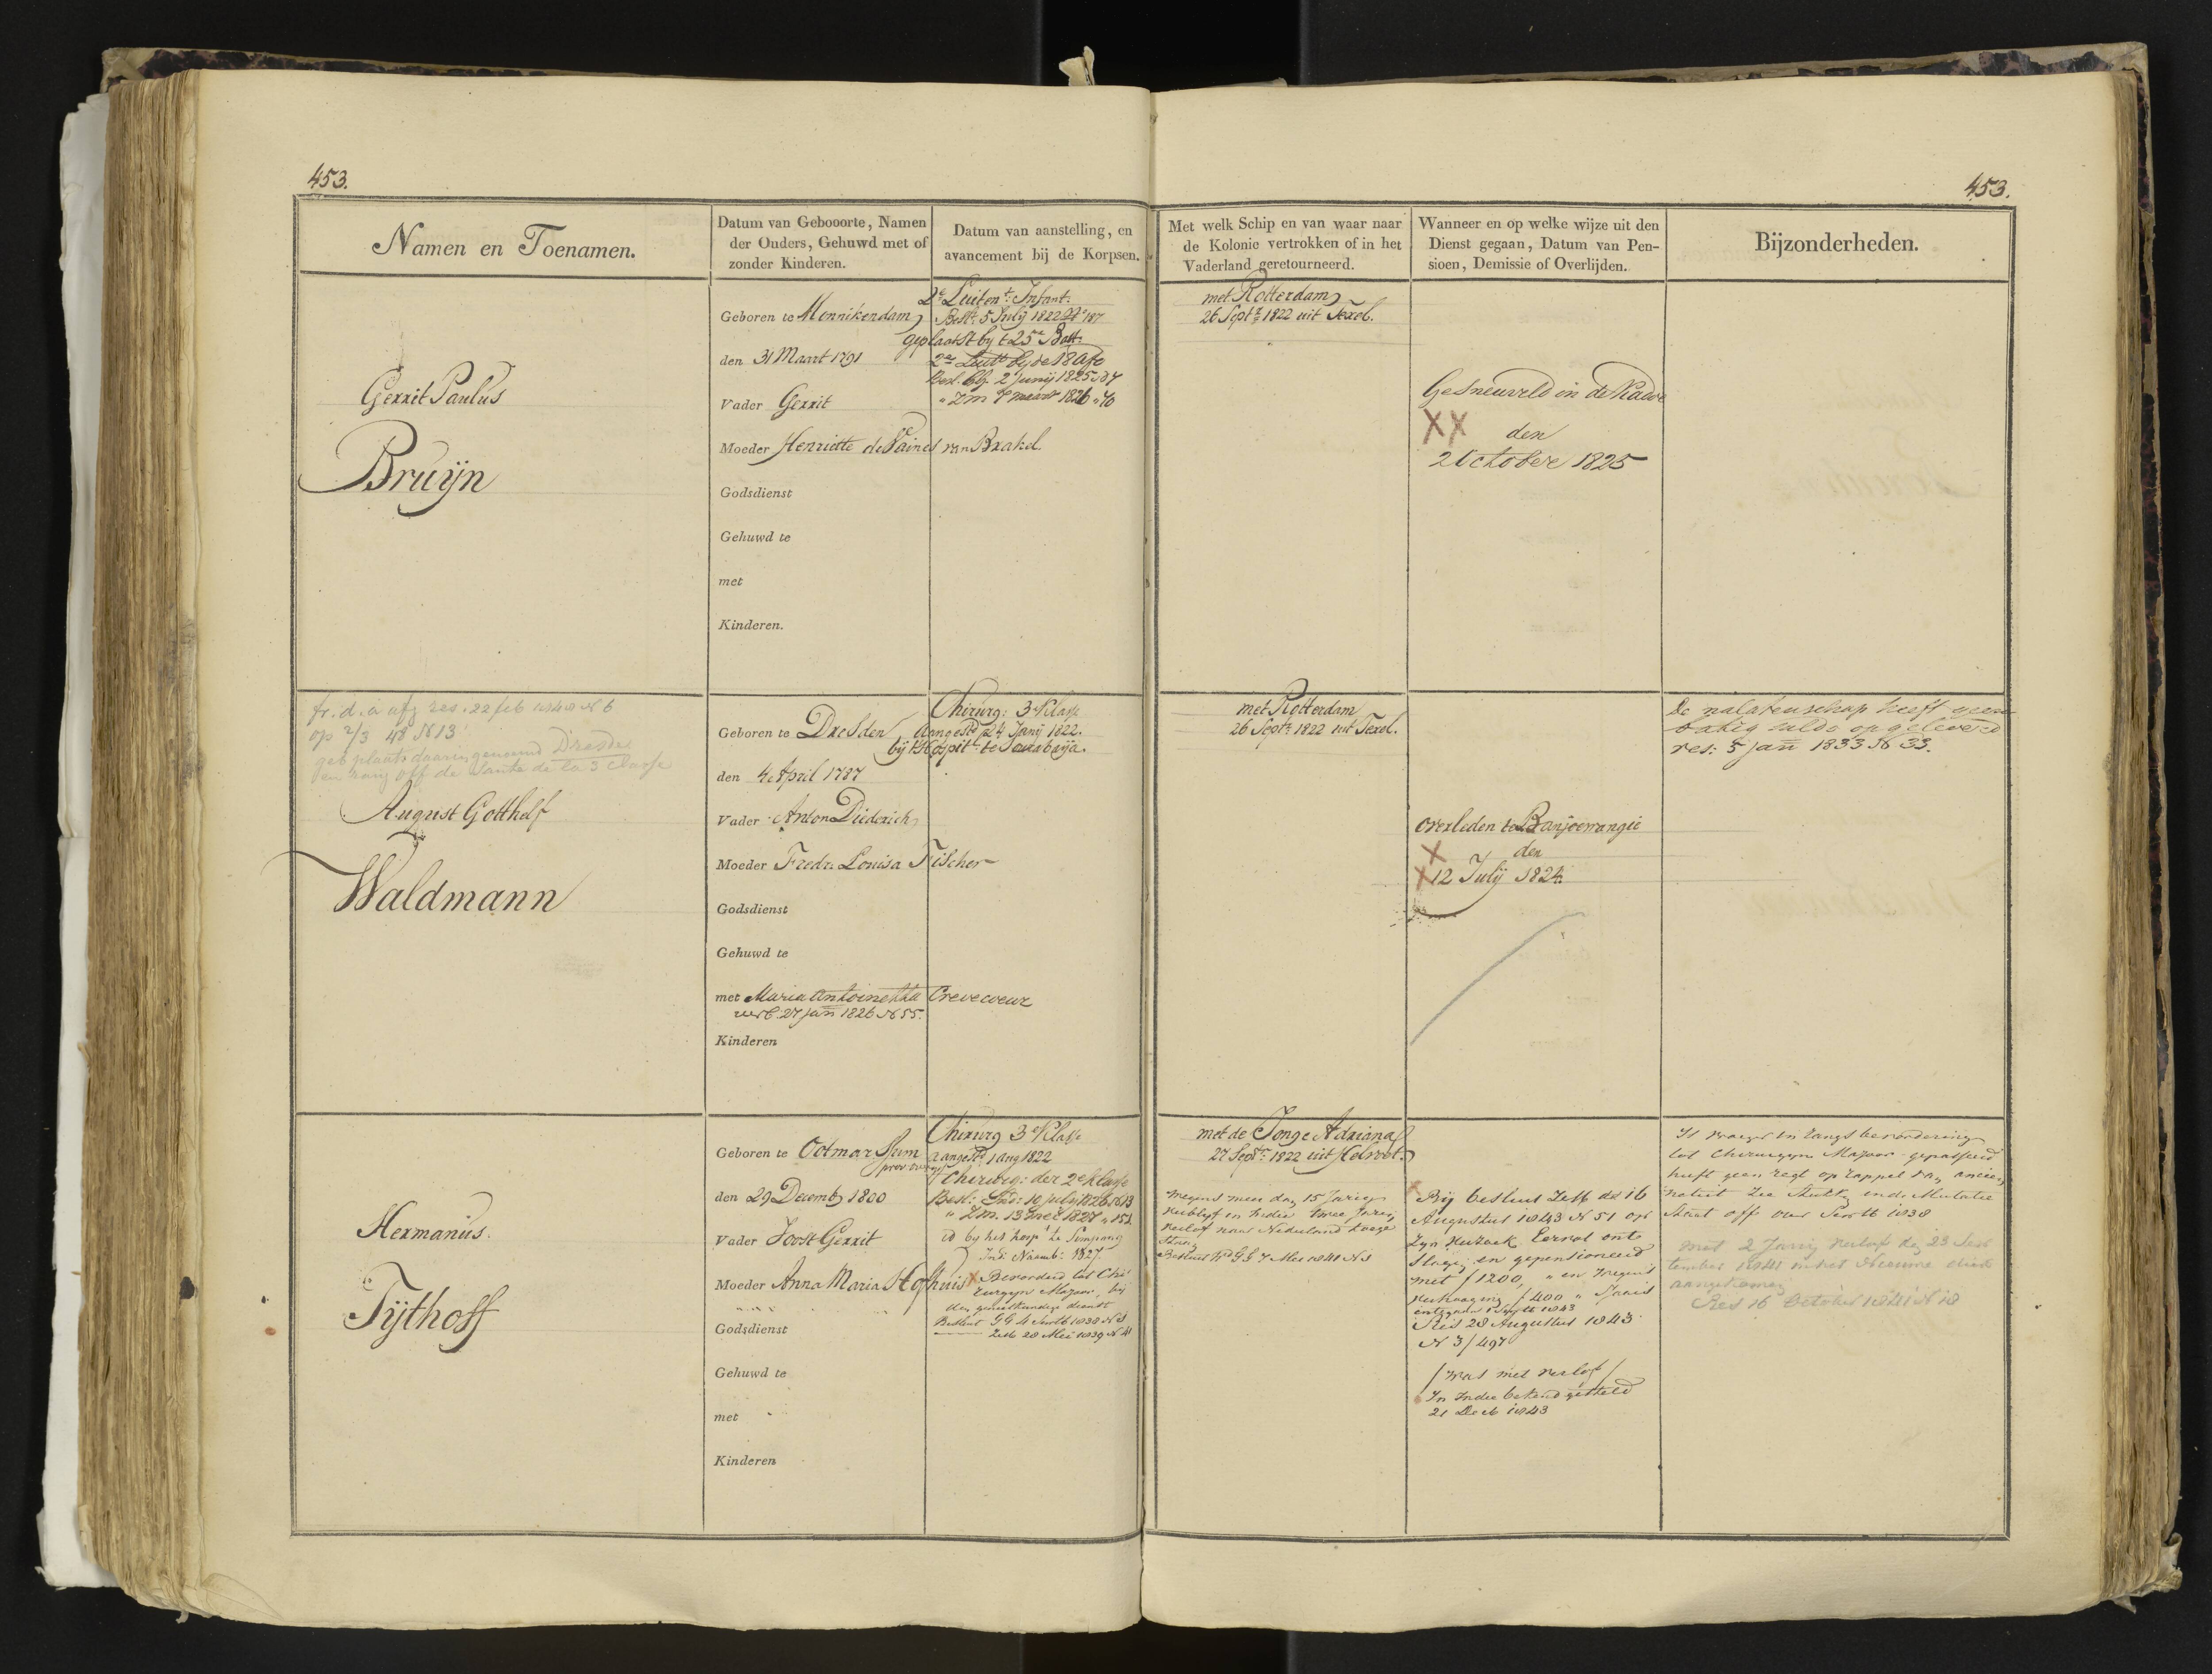 453.
453.
Namen en Toenamen.
Datum van Gebooorte, Namen
der Ouders, Gehuwd met of
zonder Kinderen.
Datum van aanstelling, en
avancement bij de Korpsen.
Met welk Schip en van waar naar
de Kolonie vertrokken of in het
Vaderland geretourneerd.
Wanneer en op welke wijze uit den
Dienst gegaan, Datum van Pen-
sioen, Demissie of Overlijden.
Bijzonderheden.
Gerrit Paulus
Bruijn
Geboren te Monnikendam
den 31 Maart 1791
Vader Gerrit
Moeder Henriette de Vaines van Brakel.
Godsdienst
Gehuwd te
met
Kinderen.
2e Luitent: Infant:
Beslt: 5 July 1822 No 187
geplaatst by t 25e Batt:
2en Luitt by de 18 Afe
Besl. Cg. 2 Junij 1825 No 7
" Zm 7 maart 1826 " 40
met Rotterdam
26 Septr 1822 uit Texel.
Gesneuveld in de
XX den
2 October 1825
fr. d. a afg res. 22 feb 1848 N 6
op 2/3 48 N 13
geb plaats daarin genoemd Dresde
en rang off de Sante de la 3 Classe
August Gotthelf
Waldmann
Geboren te Dresden
den 4e April 1787
Vader Anton Diederich
Moeder Fredr: Louisa Fischer
Godsdienst
Gehuwd te
met Maria Antoinetta Crevecoeur
verb. 27 jan 1826 N 55.
Kinderen
Chirurg: 3e Klasse
Aangestd 24 Junij 1822.
bij t Hospitl te Sourabaija.
met Rotterdam
26 Septr 1822 uit Texel.
Overleden te Banjoewangie
X den
X 12 Julij 1824.
De nalatenschap heeft geen
batig saldo opgeleverd
res: 5 jan 1833 N 33.
Hermanus
Tijthoff
Geboren te Ootmarssum
prov: overijs
den 29 Decemb 1800
Vader Joost Gerrit
Moeder Anna Maria Hofhuis
Godsdienst
Gehuwd te
met
Kinderen
Chirurg 3e Klasse
aangestd 1 aug 1822
Chirurg: der 2e klasse
Besl: Ind: 10 july 1826 N 13
" Zm. 13 mei 1827 " 152
id by het hosp te Simpang
Ind: Novemb: 1827.
X Bevorderd tot Chi
rurgyn Majoor, bij
den geneeskundige dienst
Besluit GG 4 Septb 1838 N 8
Zelb 28 Mei 1839 N 41
met de Jonge Adriana
27 Septr: 1822 uit Helvoet.
wegens meer dan 15 Jarig
verblyf in Indie twee Jarig
verlof naar Nederland toege
staan
Besluit Wd GG 7 Mei 1841 N 1
Bij besluit Zelb de 16
Augustus 1843 N 51 op
Zyn verzoek Eervol ont
slagen en gepensioneerd
met f 1200, " en wegens
verhooging f 400 " Sjaars
ontgaan 1 Septb 1843
Res 28 Augustus 1843
N 3/497
/ was met verlof /
In Indie bekend gesteld
21 Decb 1843
Is vroeger in rangs bevordering
tot Chirurgyn Majoor gepasseerd
heeft geen regt op rappel van ancien
neteit Zie Stukken in de Mutatie
Staat off over Septb 1838
met 2 Jarig verlof den 23 Sep
tember 1841 in het Nieuwe diep
aangekomen
Res 16 October 1841 N 18